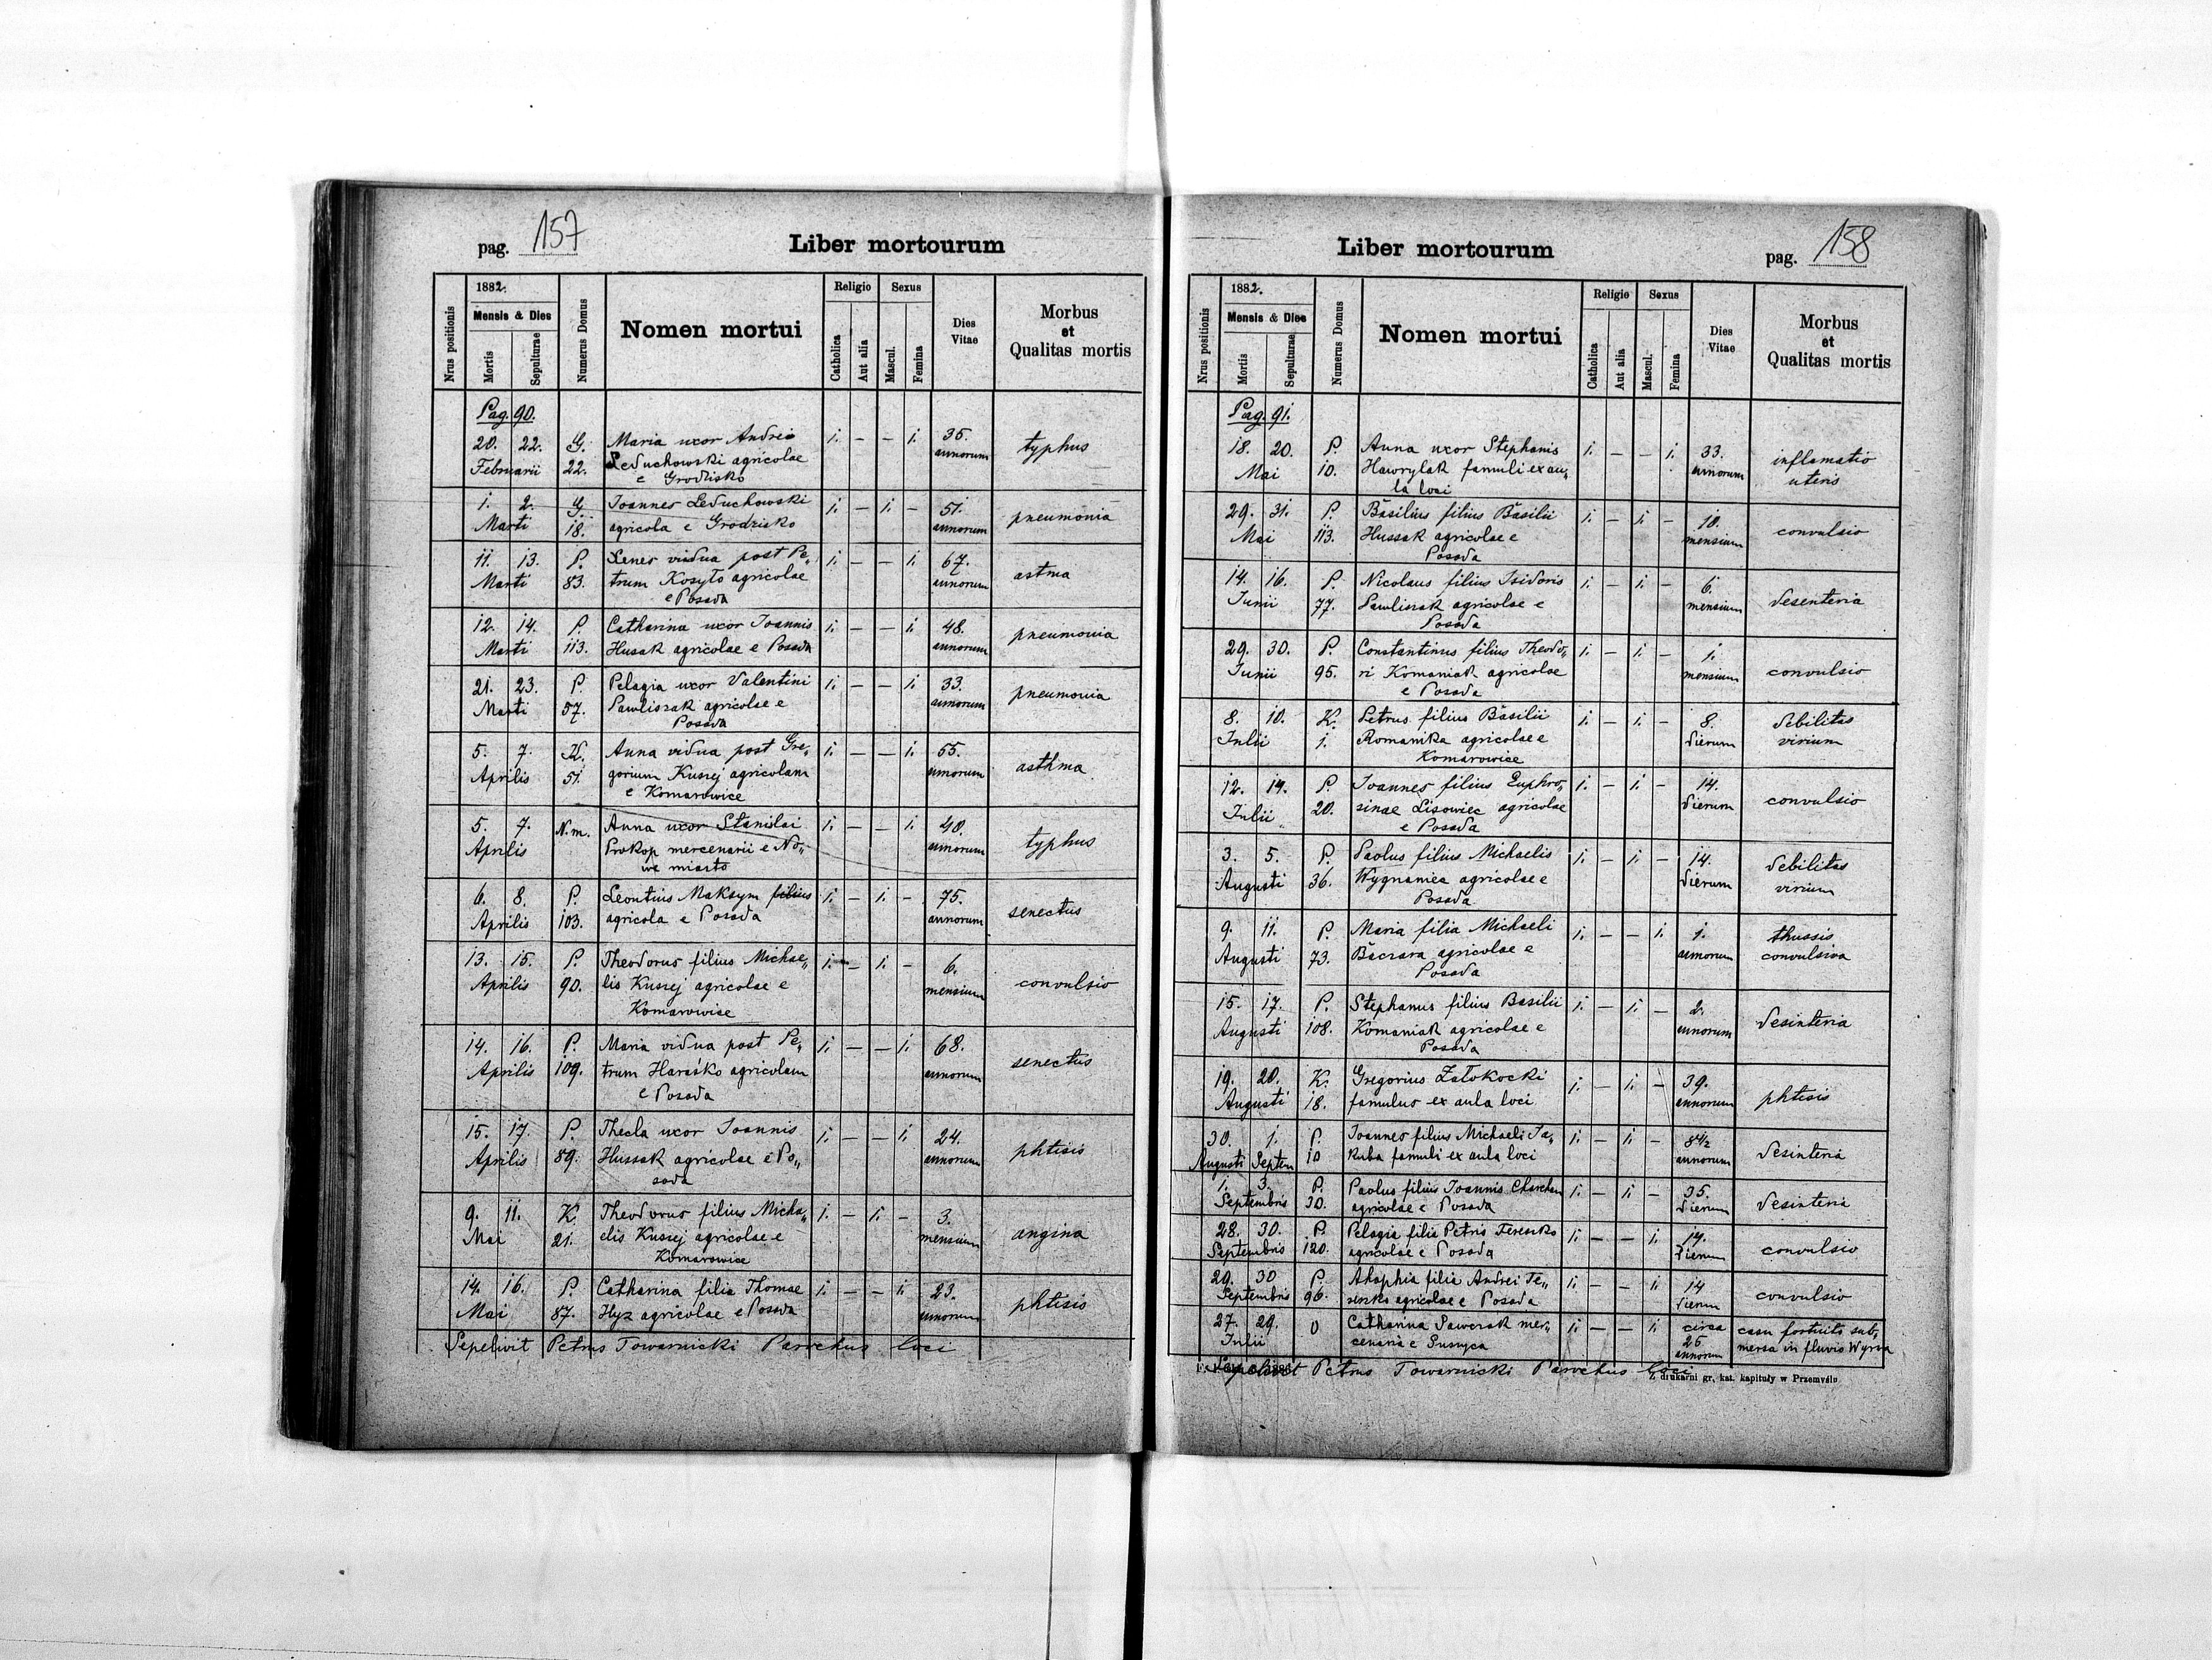 pag. 157
Liber mortourum
Nrus positionis
1882.
Mensis & Dies
Mortis
Sepulturae
Numerus Domus
Nomen mortui
Religio
Catholica
Aut alia
Sexus
Mascul.
Femina
Dies Vitae
Morbus
et
Qualitas mortis
Pag. 90.
20. 22. G. Maria uxor Andrei 1. – – 1. 35. typhus
Februarii 22. Leduchowski agricolae annorum
e Grodzisko
1. 2. G. Joannes Leduchowski 1. – 1. – 51. pneumonia
Marti 18. agricola e Grodzisko annorum
11. 13. P. Xenes vidua post Pe„ 1. – – 1. 67. astma
Marti 83. trum Kosyło agricolae annorum
e Posada
12. 14. P. Catharina uxor Joannis 1. – – 1. 48. pneumonia
Marti 113. Husak agricolae e Posada annorum
21. 23. P. Pelagia uxor Valentini 1. – – 1. 33. pneumonia
Marti 57. Pawliszak agricolae e annorum
Posada
5. 7. K. Anna vidua post Gre„ 1. – – 1. 55. asthma
Aprilis 51. gorium Kuszej agricolam annorum
e Komarowice
5. 7. N.m. Anna uxor Stanilai 1. – – 1. 40. typhus
Aprilis Prokop mercenarii e No„ annorum
we miasto
6. 8. P. Leontius Maksym filius 1. – 1. – 75. senectus
Aprilis 103. agricola e Posada annorum
13. 15. P. Theodorus filius Michae„ 1. – 1. – 6. convulsio
Aprilis 90. lis Kuszej agricolae e mensium
Komarowice
14. 16. P. Maria vidua post Pe„ 1. – – 1. 68. senectus
Aprilis 109. trum Haraśko agricolam annorum
e Posada
15. 17. P. Thecla uxor Joannis 1. – – 1. 24. phtisis
Aprilis 89. Hussak agricolae e Po„ annorum
sada
9. 11. K. Theodorus filius Micha„ 1. – 1. – 3. angina
Mai 21. elis Kuszej agricolae e mensium
Komarowice
14. 16. P. Catharina filia Thomae 1. – – 1. 23. phtisis
Mai 87. Hyz agricolae e Posada annorum
Sepelivit Petrus Towarnicki Parochus loci
Liber mortourum
pag. 158
Nrus positionis
1882.
Mensis & Dies
Mortis
Sepulturae
Numerus Domus
Nomen mortui
Religio
Catholica
Aut alia
Sexus
Mascul.
Femina
Dies Vitae
Morbus
et
Qualitas mortis
Pag. 91.
18. 20. P. Anna uxor Stephanis 1. – – 1. 33. inflamatio
Mai 10. Hawrylak famuli ex au„ annorum uteris
la loci
29. 31. P. Basilius filius Basilii 1. – 1. – 10. convulsio
Mai 113. Hussak agricolae e mensium
Posada
14. 16. P. Nicolaus filius Isidoris 1. – 1. – 6. desenteria
Junii 77. Pawliszak agricolae e mensium
Posada
29. 30. P. Constantinus filius Theodo„ 1. – 1. – 1. convulsio
Junii 95. ri Komaniak agricolae mensium
e Posada
8. 10. K. Petrus filius Basilii 1. – 1. – 8. debilitas
Julii 1. Romanika agricolae e dierum virium
Komarowice
12. 14. P. Joannes filius Euphro„ 1. – 1. – 14. convulsio
Julii 20. sinae Lisowiec agricolae dierum
e Posada
3. 5. P. Paolus filius Michaelis 1. – 1. – 14. debilitas
Augusti 36. Wygnaniea agricolae e dierum virium
Posada
9. 11. P. Maria filia Michaeli 1. – – 1. 1. thussis
Augusti 73. Baczara agricolae e annorum convulsiva
Posada
15. 17. P. Stephanus filius Basilii 1. – 1. – 2. desinteria
Augusti 108. Komaniak agricolae e annorum
Posada
19. 20. K. Gregorius Załokocki 1. – 1. – 39. phtisis
Augusti 18. famulus ex aula loci annorum
30. 1. P. Joannes filius Michaeli Ja„ 1. – 1. – 8 1/2 desinteria
Augusti Septem 10 kuba famuli ex aula loci annorum
1. 3. P. Paolus filius Joannis 1. – 1. – 35. desinteria
Septembris 30. agricolae e Posada dierum
28. 30. P. Pelagia filia Petris 1. – – 1. 14. convulsio
Septembris 120. agricolae e Posada dierum
29. 30 P. filia Andrei Te„ 1. – – 1. 14 convulsio
Septembris 96. reszko agricolae e Posada dierum
27. 29. 0 Catharina Pawczak mer„ 1. – – 1. circa casu fortuito sub„
Julii cenaria e 25 annorum mersa in fluvio Wyrwa
Sepelivit Petrus Towarnicki Parochus loci
Z drukarni gr. kat. kapituły w Przemyślu